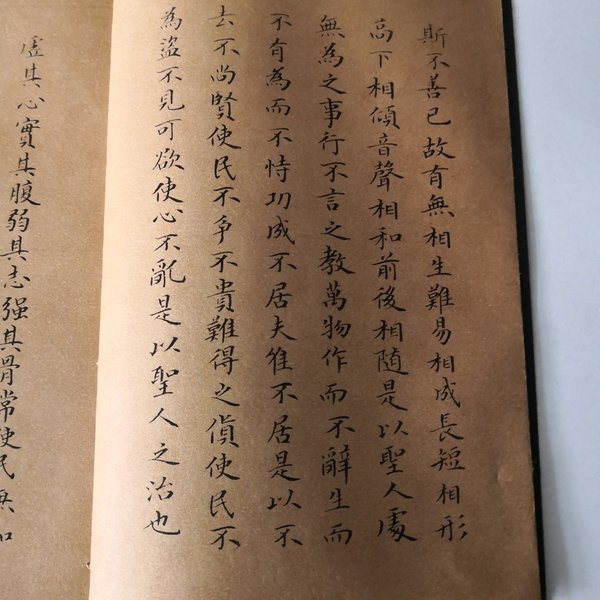 斯不善已故有無相生難易相成長短相形
高下相傾音聲相和前後相隨是以聖人處
無為之事行不言之教萬物作而不辭生而
不有為而不恃功成不居夫惟不居是以不
去不尚賢使民不爭不貴難得之貨使民不
為盜不見可欲使心不亂是以聖人之治也
虛其心實其腹弱其志强其骨常使民無知